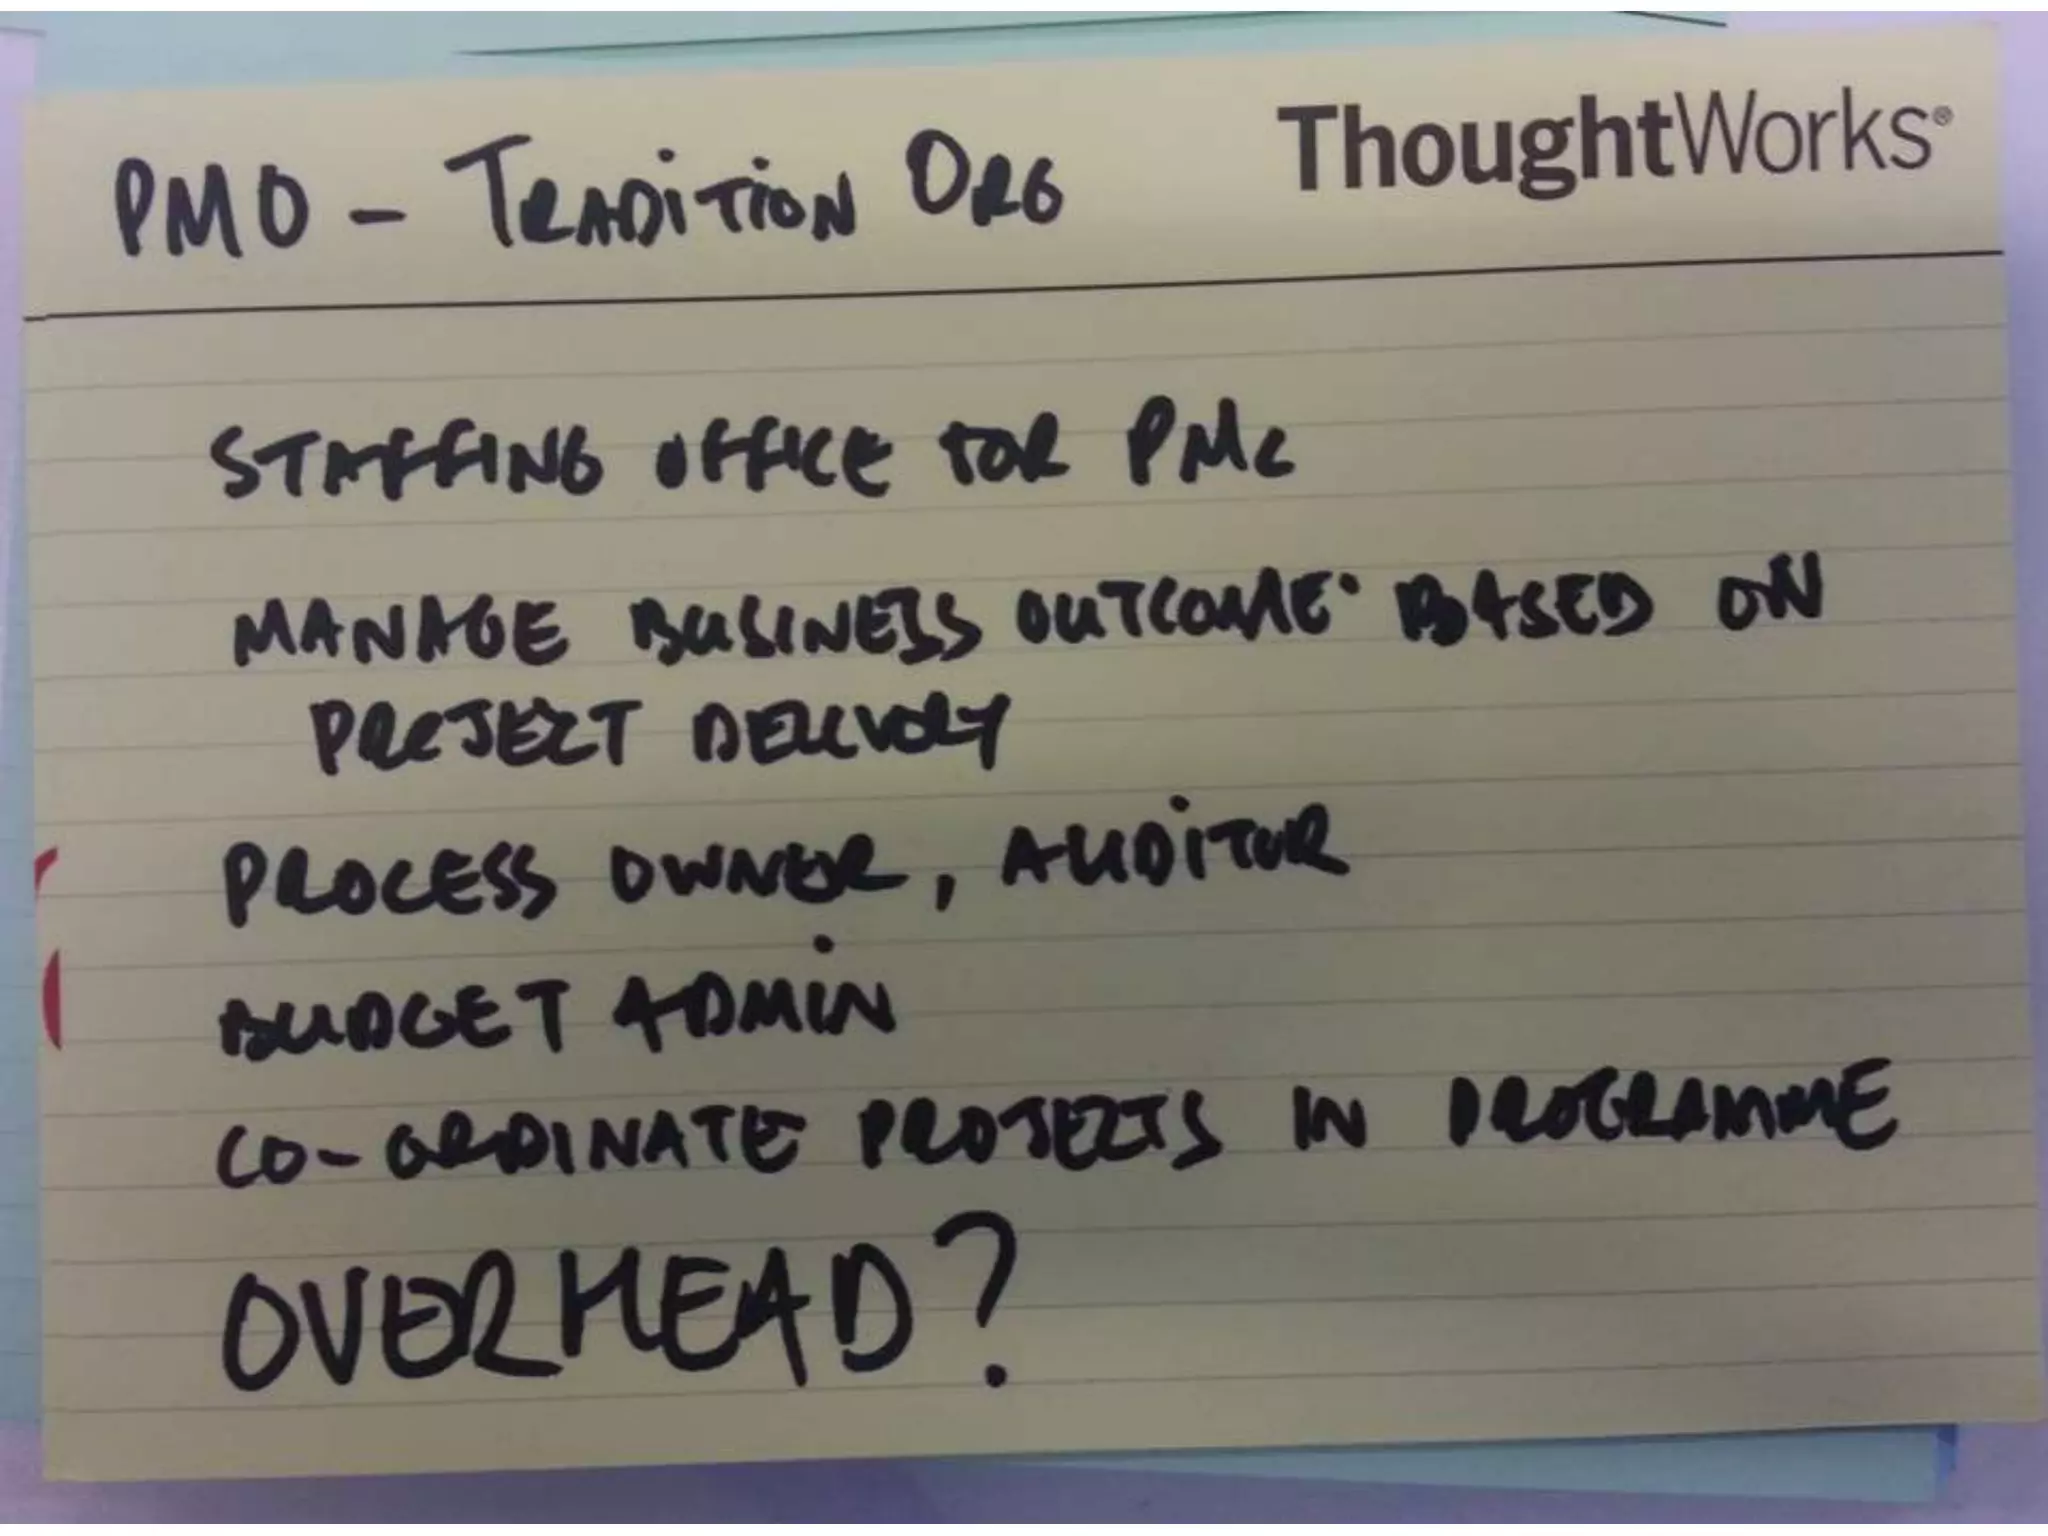 PMO - TRADITION ORG
ThoughtWorks®
STAFFING OFFICE FOR PMs
MANAGE BUSINESS OUTCOME BASED ON
PROJECT DELIVERY
PROCESS OWNER, AUDITOR
BUDGET ADMIN
CO-ORDINATE PROJECTS IN PROGRAMME
OVERHEAD?